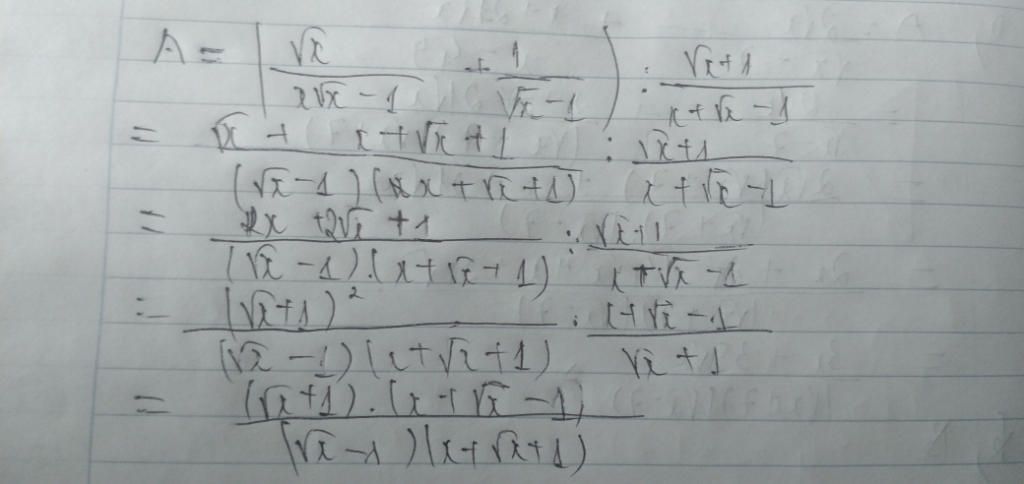 A = (√x / (x√x - 1) + 1 / (√x - 1)) : (√x + 1) / (x + √x - 1)
= (√x + x + √x + 1) / ((√x - 1)(x + √x + 1)) : (√x + 1) / (x + √x - 1)
= (x + 2√x + 1) / ((√x - 1).(x + √x + 1)) : (√x + 1) / (x + √x - 1)
= (√x + 1)² / ((√x - 1)(x + √x + 1)) . (x + √x - 1) / (√x + 1)
= (√x + 1).(x + √x - 1) / ((√x - 1)(x + √x + 1))